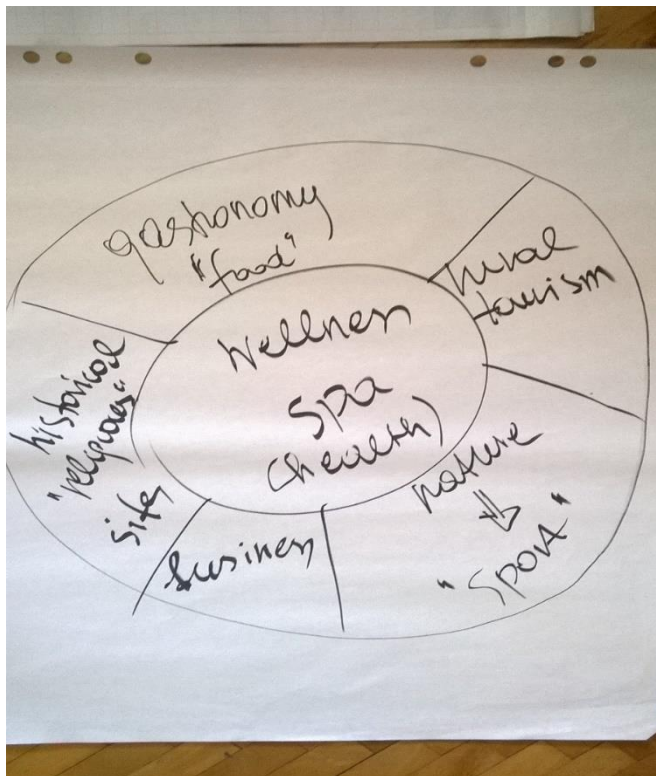 gastronomy
"food"
rural
tourism
Wellness
Spa
(health)
historical
"religious"
site
business
nature
⇓
"Sport"